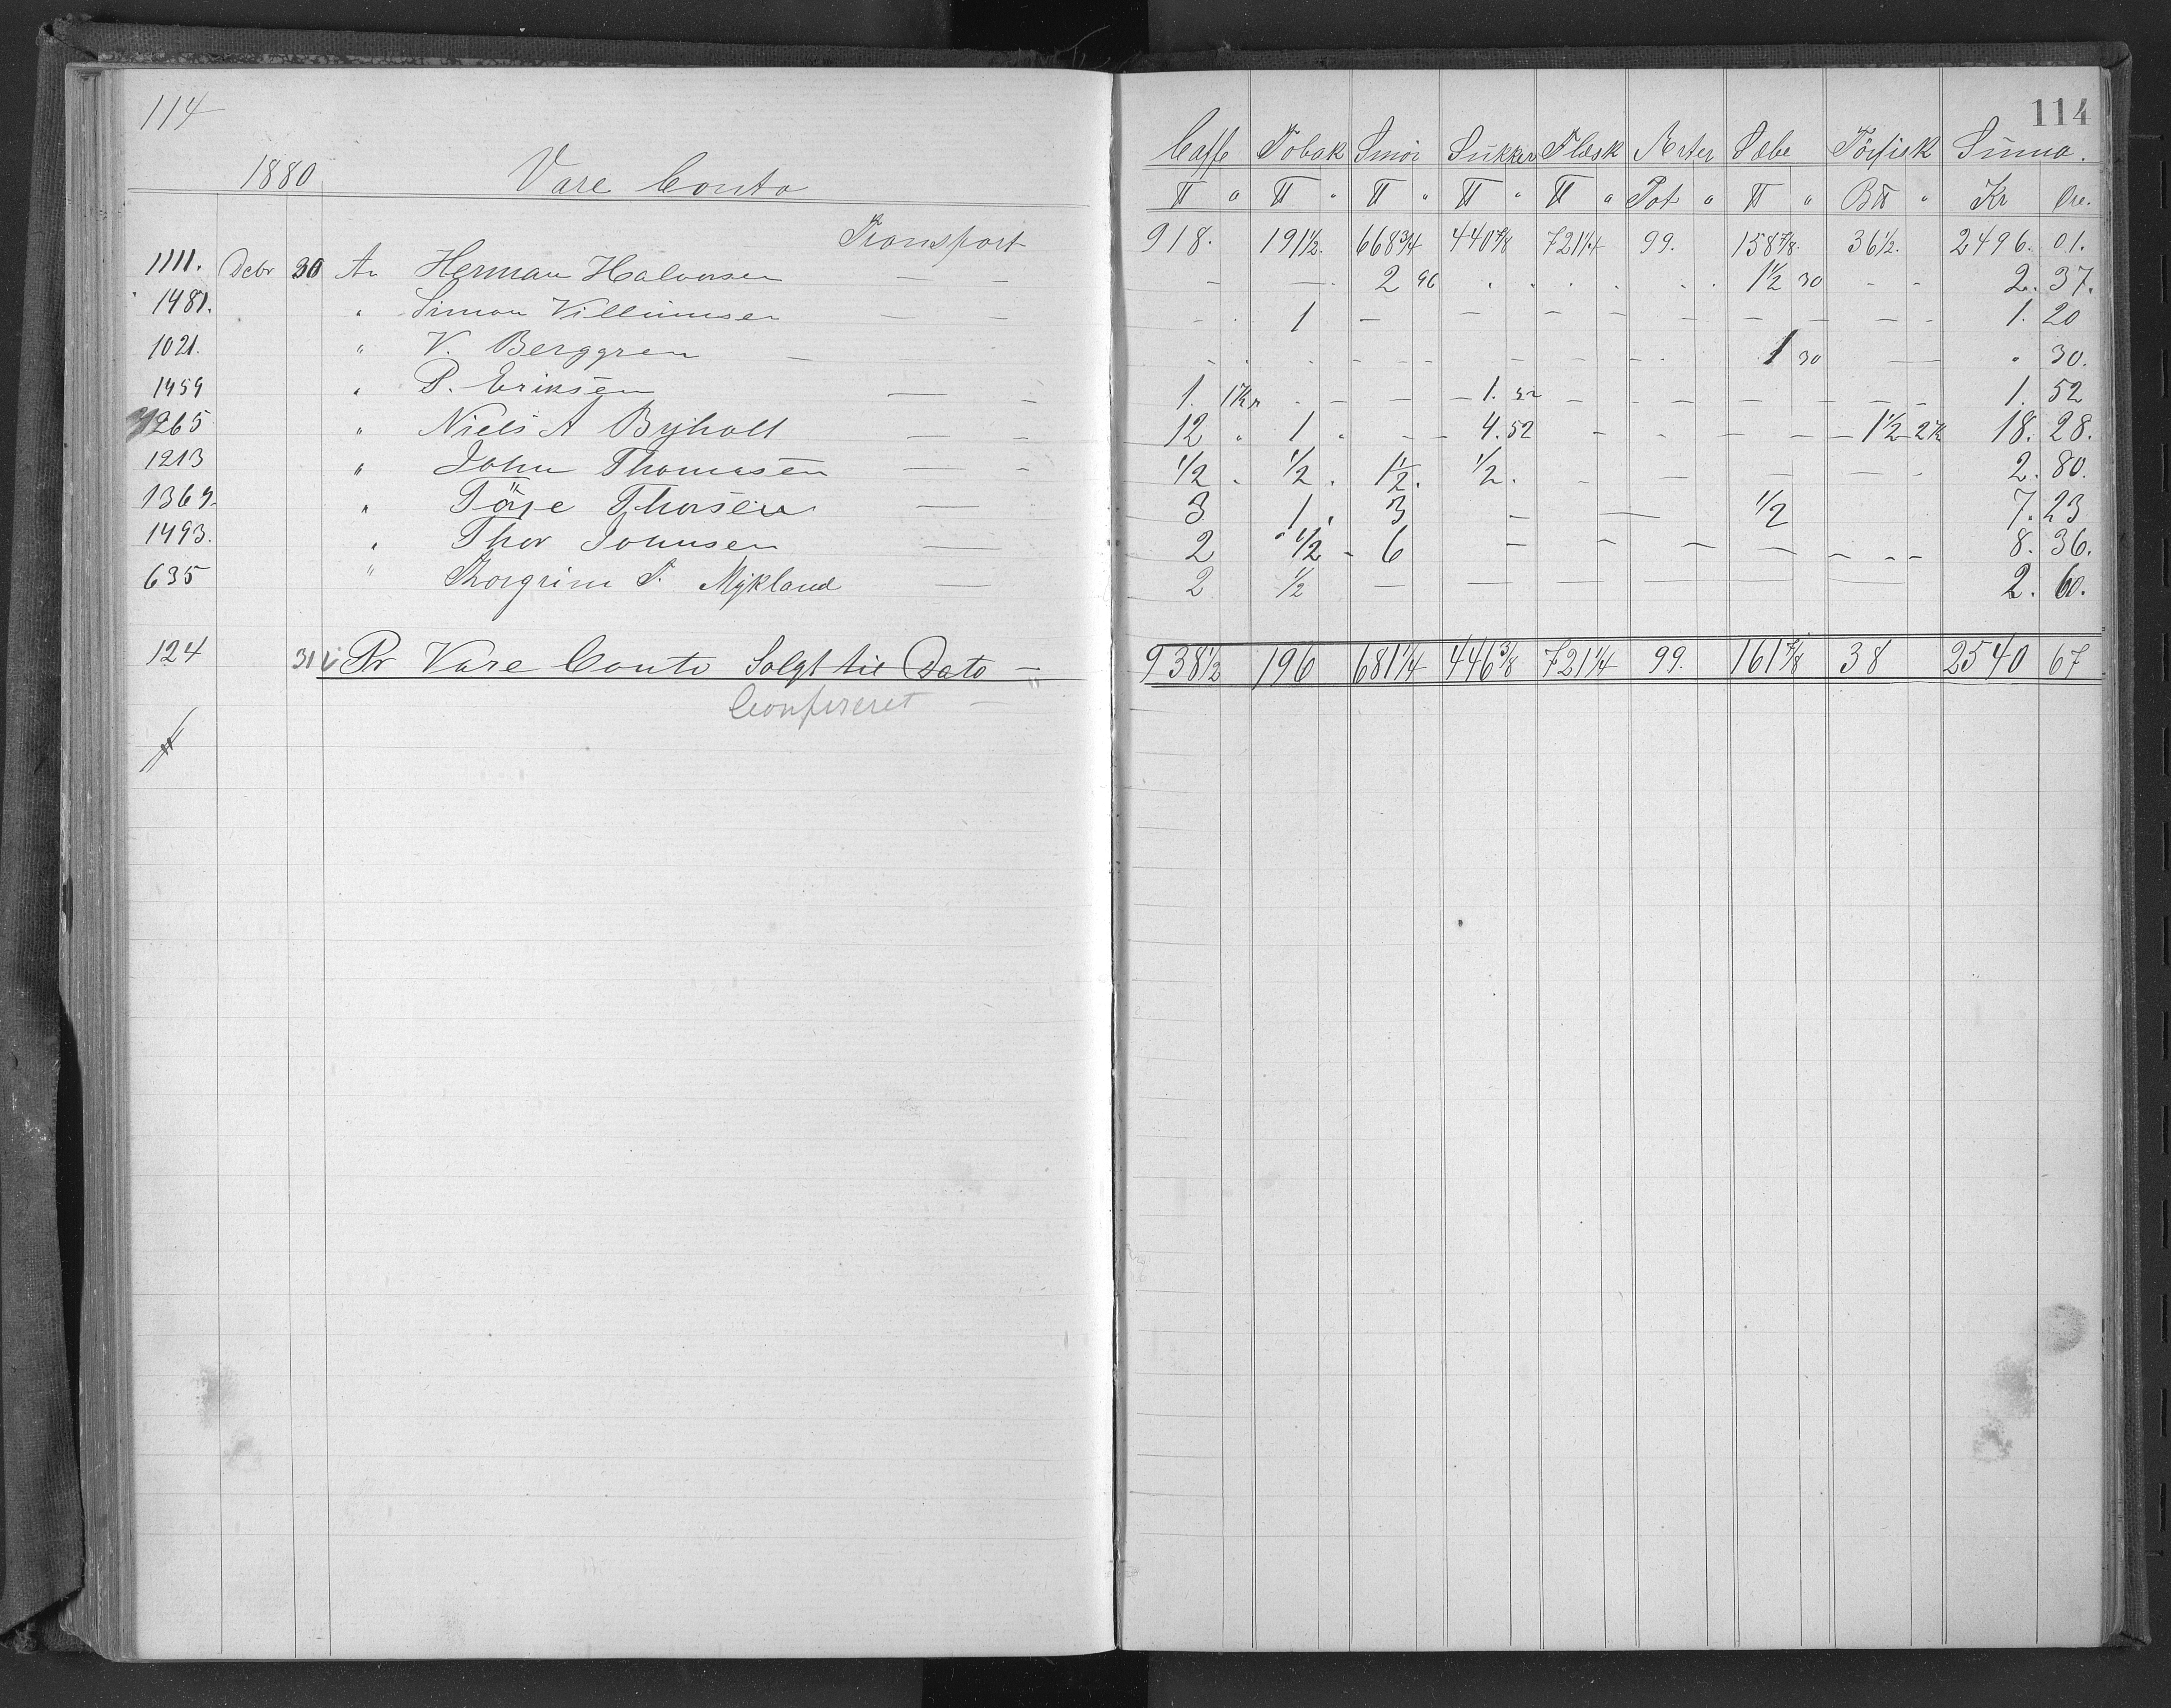 114
1880 Vare Conto
Transport
1111. Decbr 30 An Herman Halvorsen — —
1481. " Simon Villumsen — —
1021. " V. Berggren — —
1459 " P. Eriksen — —
1265 " Niels A Byholt — —
1213 " John Thomasen — —
1369. " Törje Thorsen —
1493. " Thor Johnsen —
635 " Thorgrim T. Mykland —
124 31 Pr Vare Conto Solgt til Dato —
Confereret —
114
Caffe Tobak Smör Sukker Flæsk Ærter Sæbe Törfisk Summa.
℔ " ℔ " ℔ " ℔ " ℔ " Pot " ℔ " B℔ " Kr Öre.
918. 191½. 668¾ 440⅞ 721¼ 99. 158⅞. 36½. 2496. 01.
- - 2 96 . . . . . . 1½ 30 - - 2. 37.
- - 1 — — — — — — — — — 1. 20
- - - - - - - - - 1 30 — " 30.
1. 1Kr - — — 1. 52 — — — — — — 1. 52
12 " 1 " - - 4. 52 - - — — 1½ 2K 18. 28.
½ " ½ . 1½. ½. - — — — - 2. 80.
3 1. 3 — — ½ 7. 23
2 " ½ - 6 — — — — — — — 8. 36.
2 ½ — — — — — 2. 60.
938½ 196 681¼ 446⅜ 721¼ 99. 161⅞ 38 2540 67